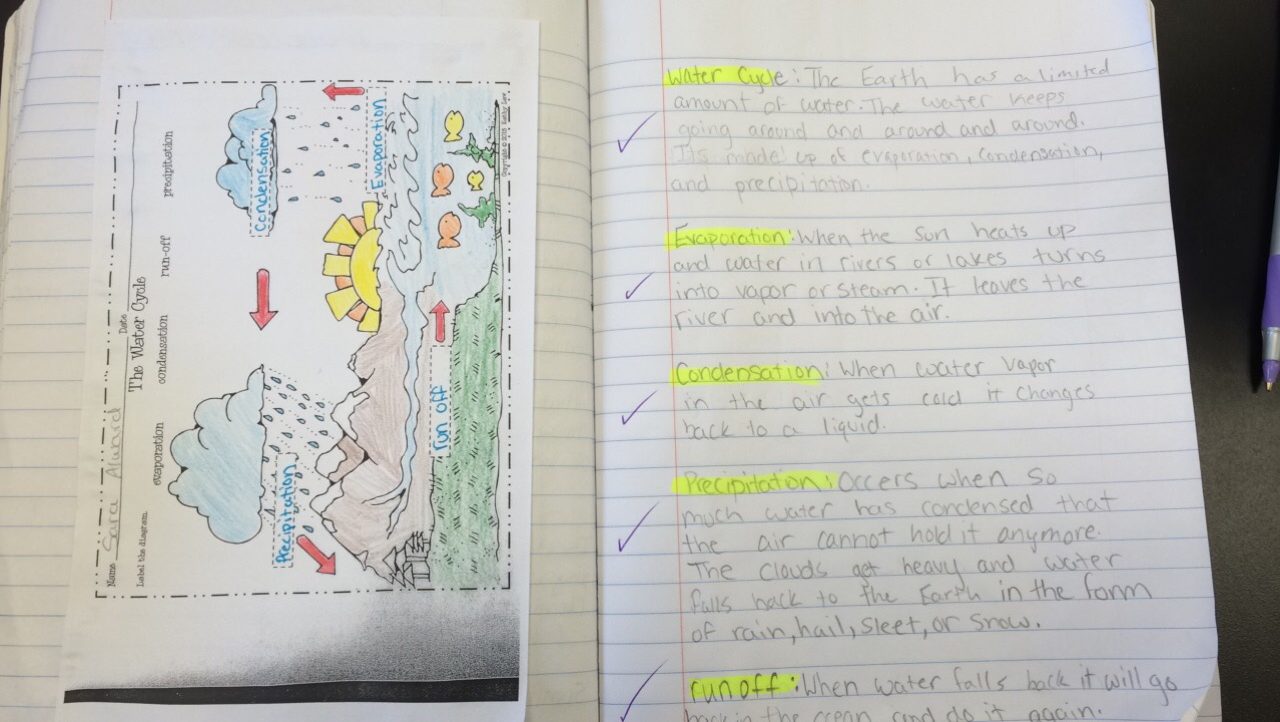 Name Sara Alward
Date
The Water Cycle
Label the diagram.
evaporation condensation run-off precipitation
Condensation
Evaporation
Precipitation
run off
Water Cycle: The Earth has a limited
amount of water. The water keeps
going around and around and around.
Its made up of evaporation, condensation,
and precipitation.
Evaporation: When the sun heats up
and water in rivers or lakes turns
into vapor or steam. It leaves the
river and into the air.
Condensation: When water vapor
in the air gets cold it changes
back to a liquid.
Precipitation: Occers when so
much water has condensed that
the air cannot hold it anymore.
The clouds get heavy and water
falls back to the Earth in the form
of rain, hail, sleet, or snow.
run off: When water falls back it will go
back in the ocean and do it again.